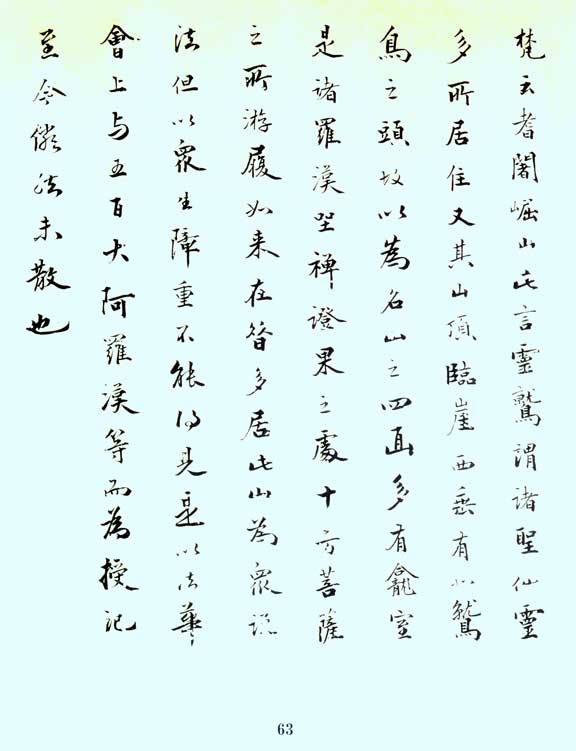 梵云耆闍崛山此言靈鷲謂諸聖仙靈
多所居住又其山頂臨崖西垂有似鷲
鳥之頭故以為名山之四面多有龕室
是諸羅漢坐禪證果之處十方菩薩
之所游履如来在昔多居此山為眾說
法但以眾生障重不能得見是以法華
會上与五百大阿羅漢等而為授記
至今儼然未散也
63